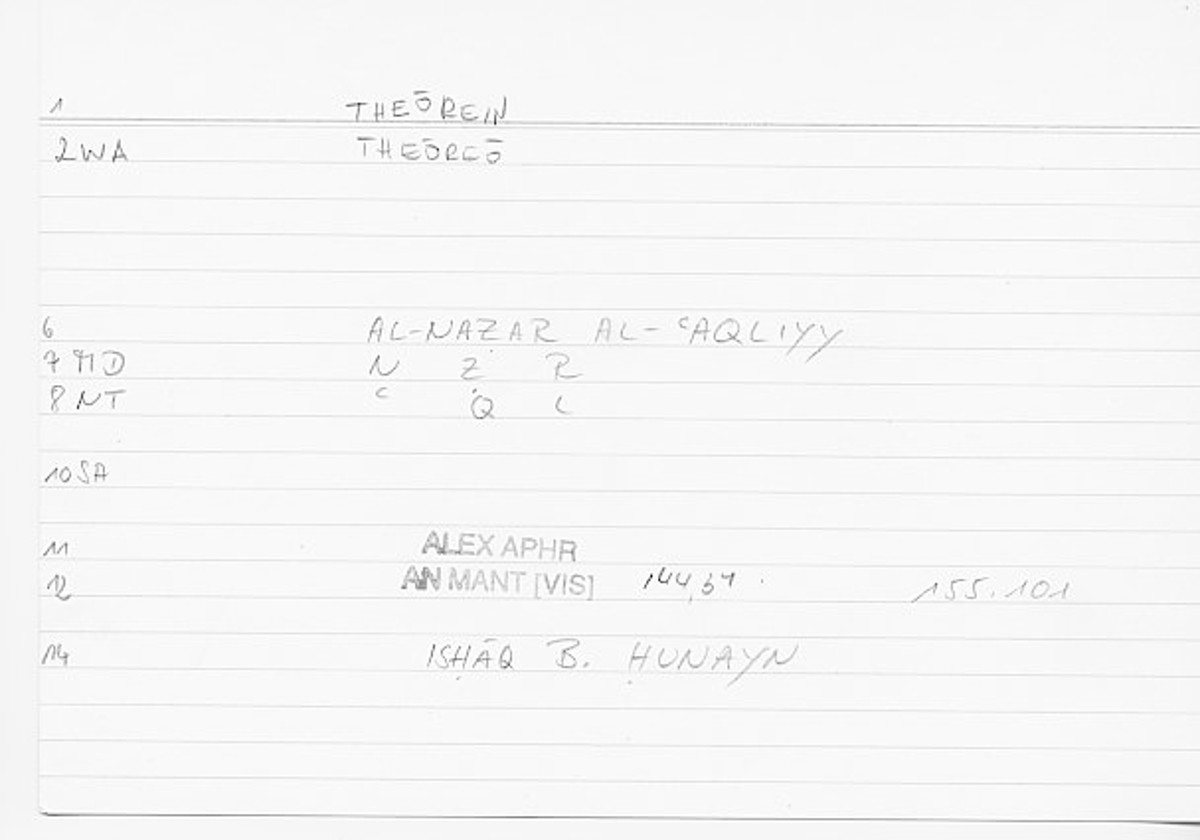 1 THEŌREIN
2 WA THEŌREŌ
6 AL-NAẒAR AL-ʿAQLIYY
7 MD N Ẓ R
8 NT ʿ Q L
10 SA
11 ALEX APHR
12 AN MANT [VIS] 155.101
14 ISḤĀQ B. ḤUNAYN